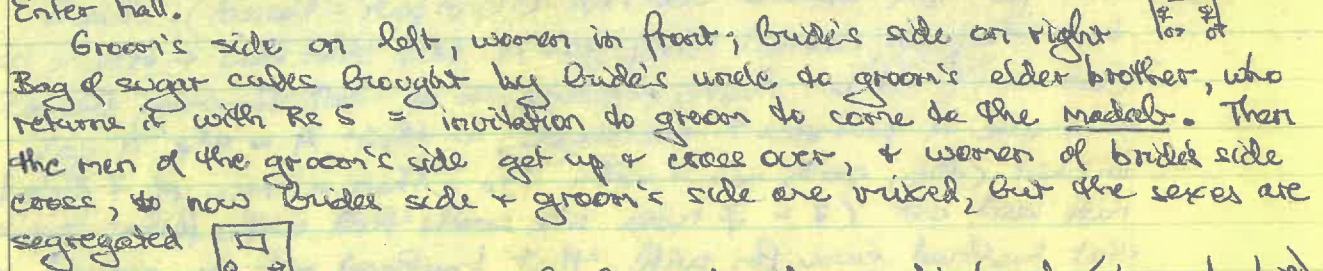 Enter hall.
Groom's side on left, women in front; bride's side on right
Bag of sugar cubes brought by bride's uncle to groom's elder brother, who
returns it with Rs 5 = invitation to groom to come to the madab. Then
the men of the groom's side get up & cross over, & women of bride's side
cross, so now brides side & groom's side are mixed, but the sexes are
segregated